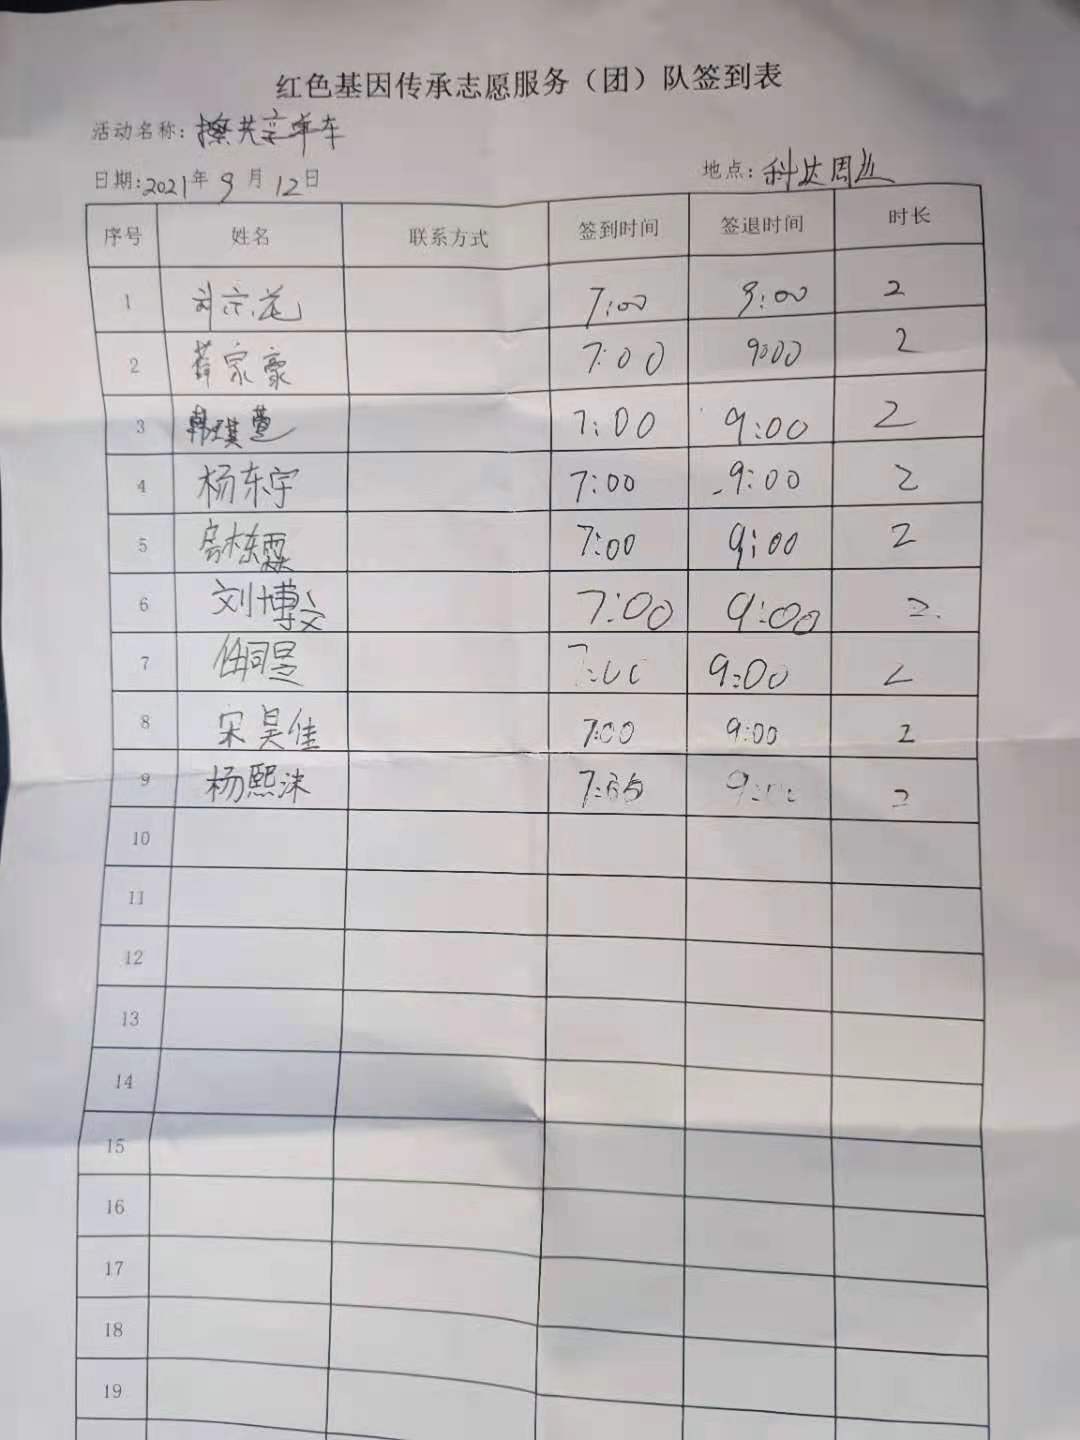 红色基因传承志愿服务（团）队签到表
活动名称：擦共享单车
日期：2021年9月12日 地点：科达周边
序号 姓名 联系方式 签到时间 签退时间 时长
1 刘 7:00 9:00 2
2 薛家豪 7:00 9:00 2
3 韩琪萱 7:00 9:00 2
4 杨东宇 7:00 9:00 2
5 房栋霖 7:00 9:00 2
6 刘博文 7:00 9:00 2
7 任同 7:00 9:00 2
8 宋昊佳 7:00 9:00 2
9 杨熙沫 9:00 2
10
11
12
13
14
15
16
17
18
19